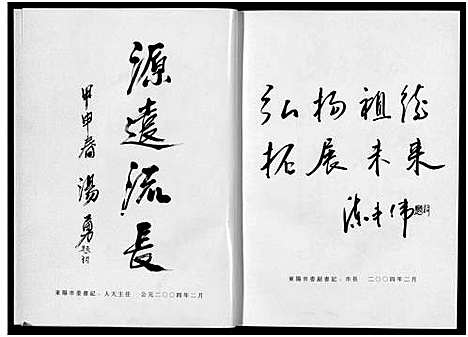 源遠流長
甲申春 湯勇題
東陽市委書記、人大主任 公元二〇〇四年二月
弘扬祖德
拓展未来
陈丰伟題
東陽市委副書記、市長 二〇〇四年二月